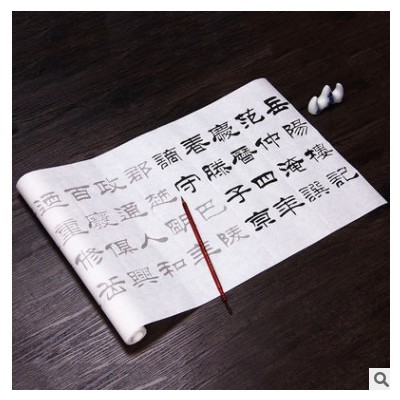 岳陽樓記
范仲淹譔
慶曆四年
春滕子京
謫守巴陵
郡越明年
政通人和
百廢俱興
迺重修岳